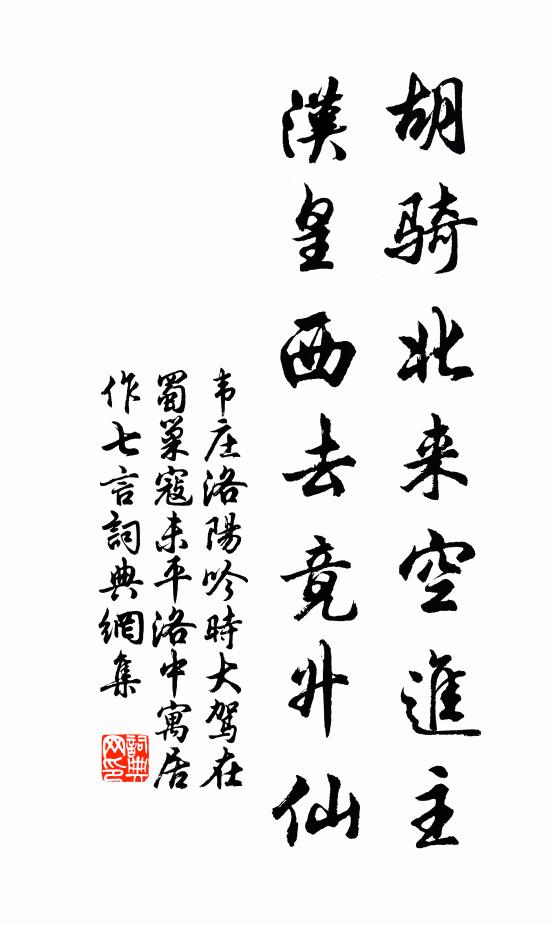 胡骑北来空進主
漢皇西去竟升仙
韦庄洛陽吟時大驾在
蜀巢寇未平洛中寓居
作七言詞典網集
詞典
网印